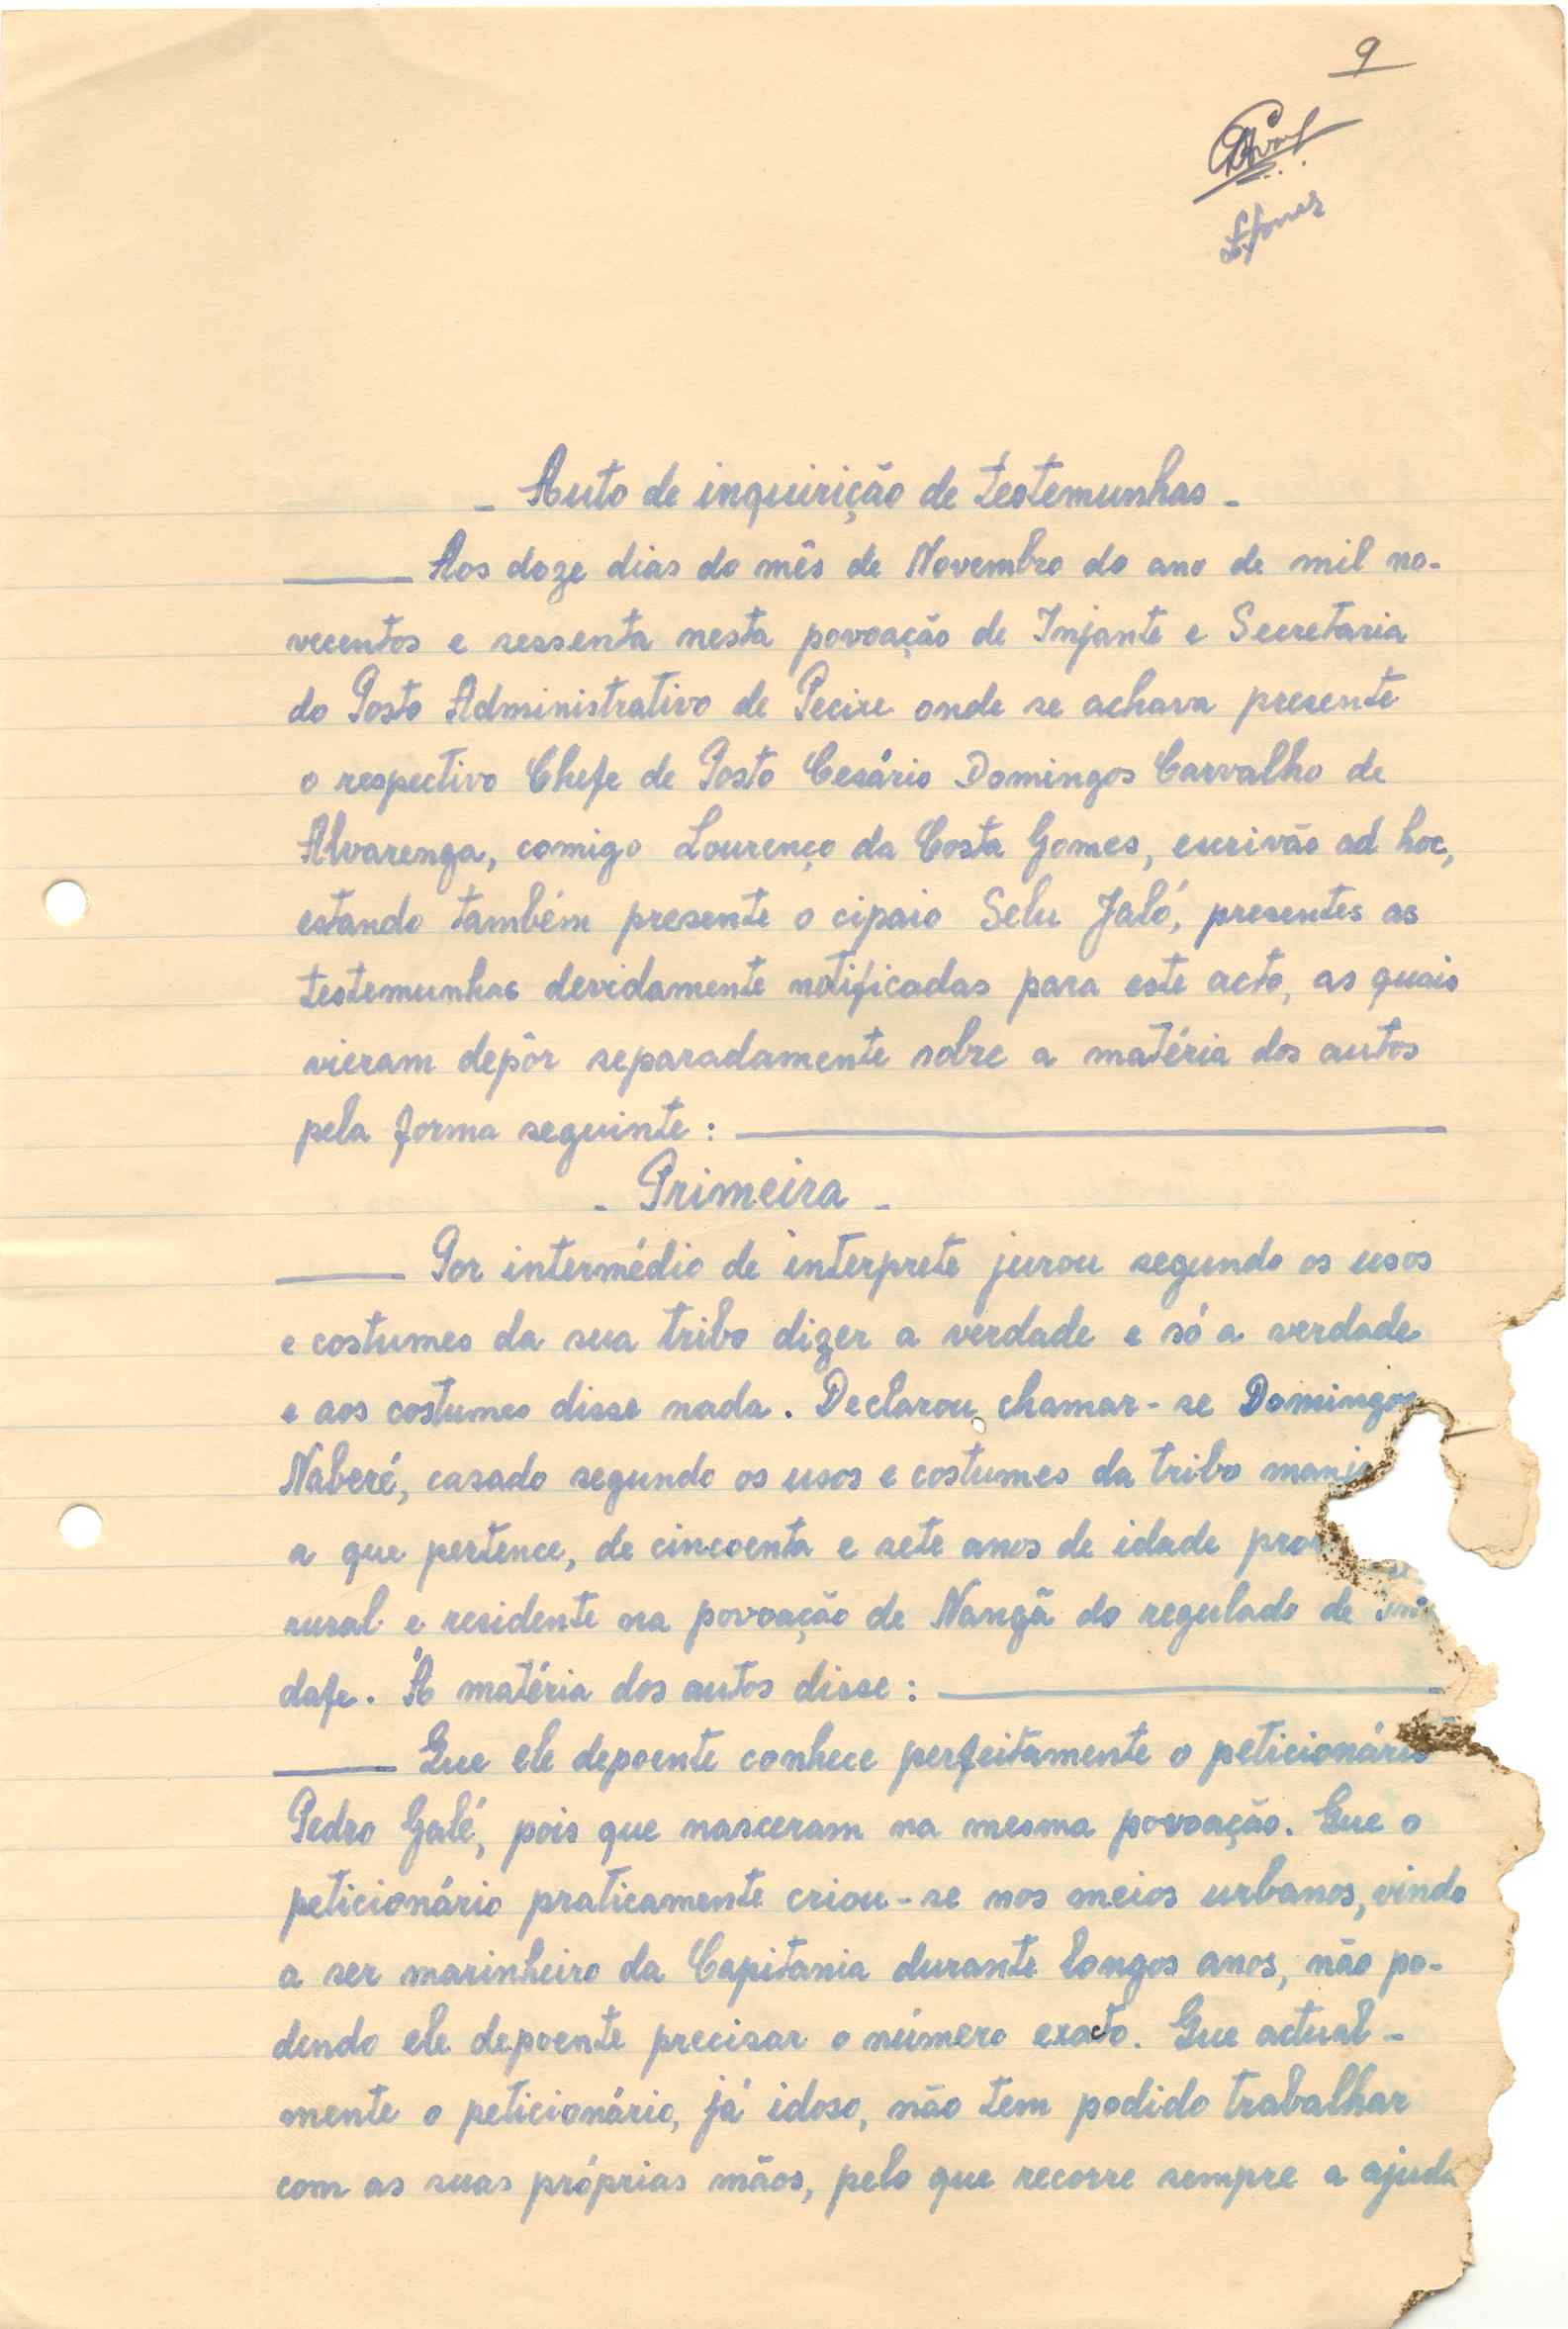 9
- Auto de inquirição de testemunhas -
Aos doze dias do mês de Novembro do ano de mil no-
vecentos e sessenta nesta povoação de Injante e Secretaria
do Posto Administrativo de Pecixe onde se achava presente
o respectivo Chefe de Posto Cesário Domingos Carvalho de
Alvarenga, comigo Lourenço da Costa Gomes, escrivão ad hoc,
estando também presente o cipaio Selu Jaló, presentes as
testemunhas devidamente notificadas para este acto, as quais
vieram depôr separadamente sobre a matéria dos autos
pela forma seguinte:
- Primeira -
Por intermédio de interprete jurou segundo os usos
e costumes da sua tribo dizer a verdade e só a verdade
e aos costumes disse nada. Declarou chamar-se Domingos
Naberé, casado segundo os usos e costumes da tribo
a que pertence, de cincoenta e sete anos de idade
rural e residente na povoação de Nangã do regulado de
dafe. Á matéria dos autos disse:
Que ele depoente conhece perfeitamente o peticionário
Pedro Galé, pois que nasceram na mesma povoação. Que o
peticionário praticamente criou-se nos meios urbanos, vindo
a ser marinheiro da Capitania durante longos anos, não po-
dendo ele depoente precisar o número exacto. Que actual-
mente o peticionário, já idoso, não tem podido trabalhar
com as suas próprias mãos, pelo que recorre sempre a ajuda